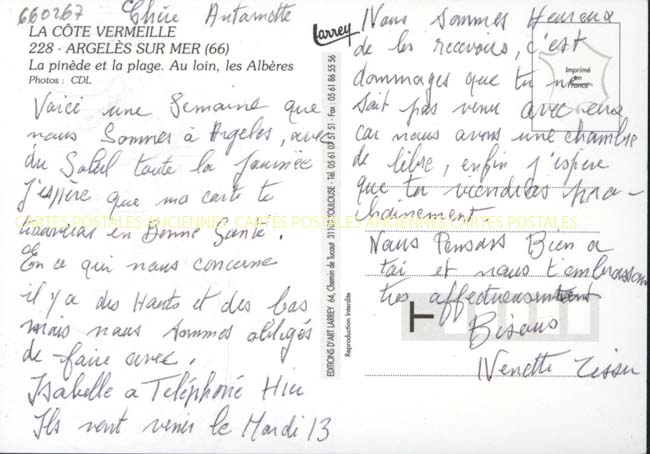 660267
Chère Antoinette
LA CÔTE VERMEILLE
228 - ARGELÈS SUR MER (66)
La pinède et la plage. Au loin, les Albères
Photos : CDL
Voici une Semaine que
nous Sommes à Argeles, avec
du Soleil toute la Journée
J'espère que ma carte te
trouveras en Bonne Santé.
En ce qui nous concerne
il y a des Hauts et des bas
mais nous sommes obligés
de faire avec.
Isabelle a Teléphoné Hier
Ils vont venir le Mardi 13
Larrey
EDITIONS D'ART LARREY 64, Chemin de Tucaut 31107 TOULOUSE - Tél. 05 61 07 51 51 - Fax : 05 61 86 55 56
Reproduction Interdite
Imprimé
en
France
Nous sommes Heureux
de les recevoirs, c'est
dommages que tu ne
soit pas venu avec eux
car nous avons une chambre
de libre, enfin j'espere
que tu viendras pro-
chainement.
Nous Pensons Bien a
toi et nous t'embrassons
tres affectueusement
Bisous
CARTES POSTALES ANCIENNES CARTES POSTALES ANCIENNES CARTES POSTALES